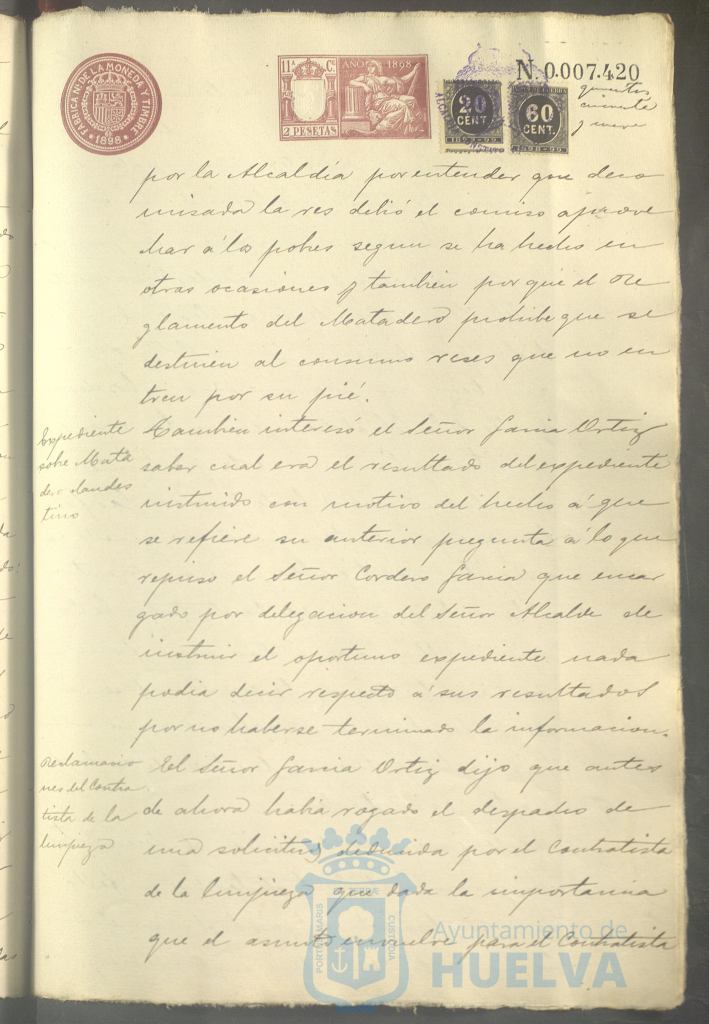 FÁBRICA NL. DE LA MONEDA Y TIMBRE
* 1898 *
11ª C.
AÑO 1898
2 PESETAS
20
CENT.
1898-99
60
CENT.
1898-99
N. 0.007.420
quinientos
cincuenta
y nueve
por la Alcaldía por entender que deco
misada la res debió el comiso aprove
char á los pobres segun se ha hecho en
otras ocasiones y tambien por que el Re
glamento del Matadero prohibe que se
destinen al consumo reses que no en
tren por su pié.
Expediente
sobre Mata
dero clandes
tino
Tambien interesó el Señor Garcia Ortiz
saber cual era el resultado del expediente
instruido con motivo del hecho á que
se refiere su anterior pregunta á lo que
repuso el Señor Cordero Garcia que encar
gado por delegacion del Señor Alcalde de
instruir el oportuno expediente nada
podia decir respecto á sus resultados
por no haberse terminado la informacion.
Reclamacio
nes del Contra
tista de la
limpieza
El Señor Garcia Ortiz dijo que antes
de ahora habia rogado el despacho de
una solicitud deducida por el Contratista
de la limpieza que dada la importancia
que el asunto envuelve para el Contratista
PORTUS MARIS
ET TERRAE
CUSTODIA
Ayuntamiento de
HUELVA